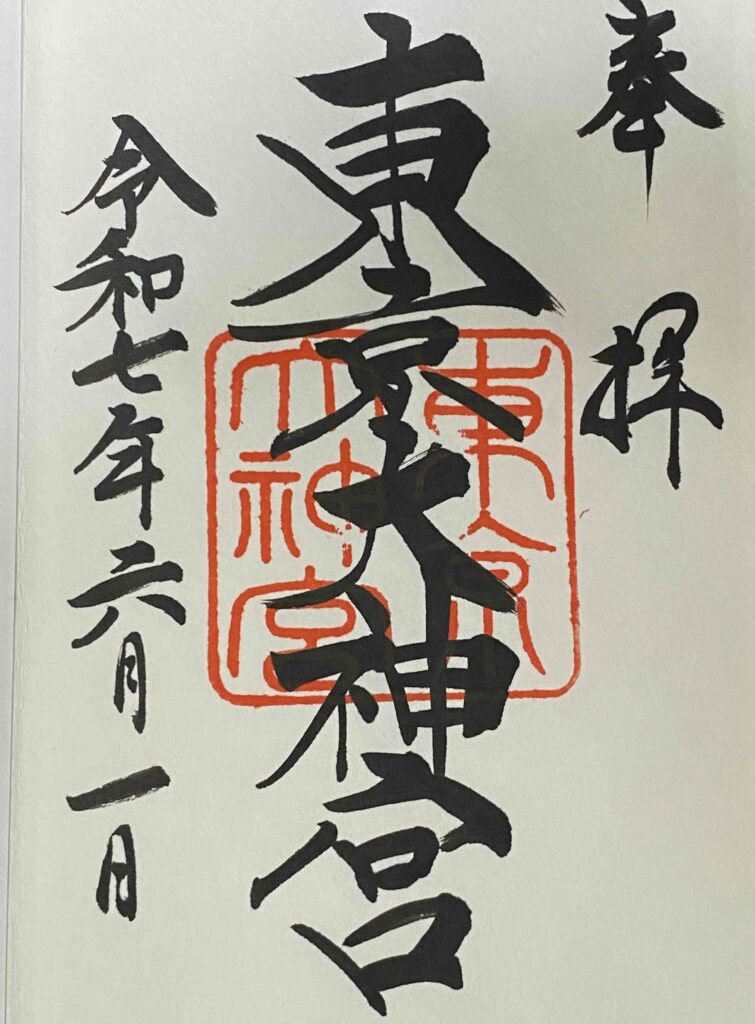 奉拝
東京大神宮
東京
大神宮
令和七年六月一日